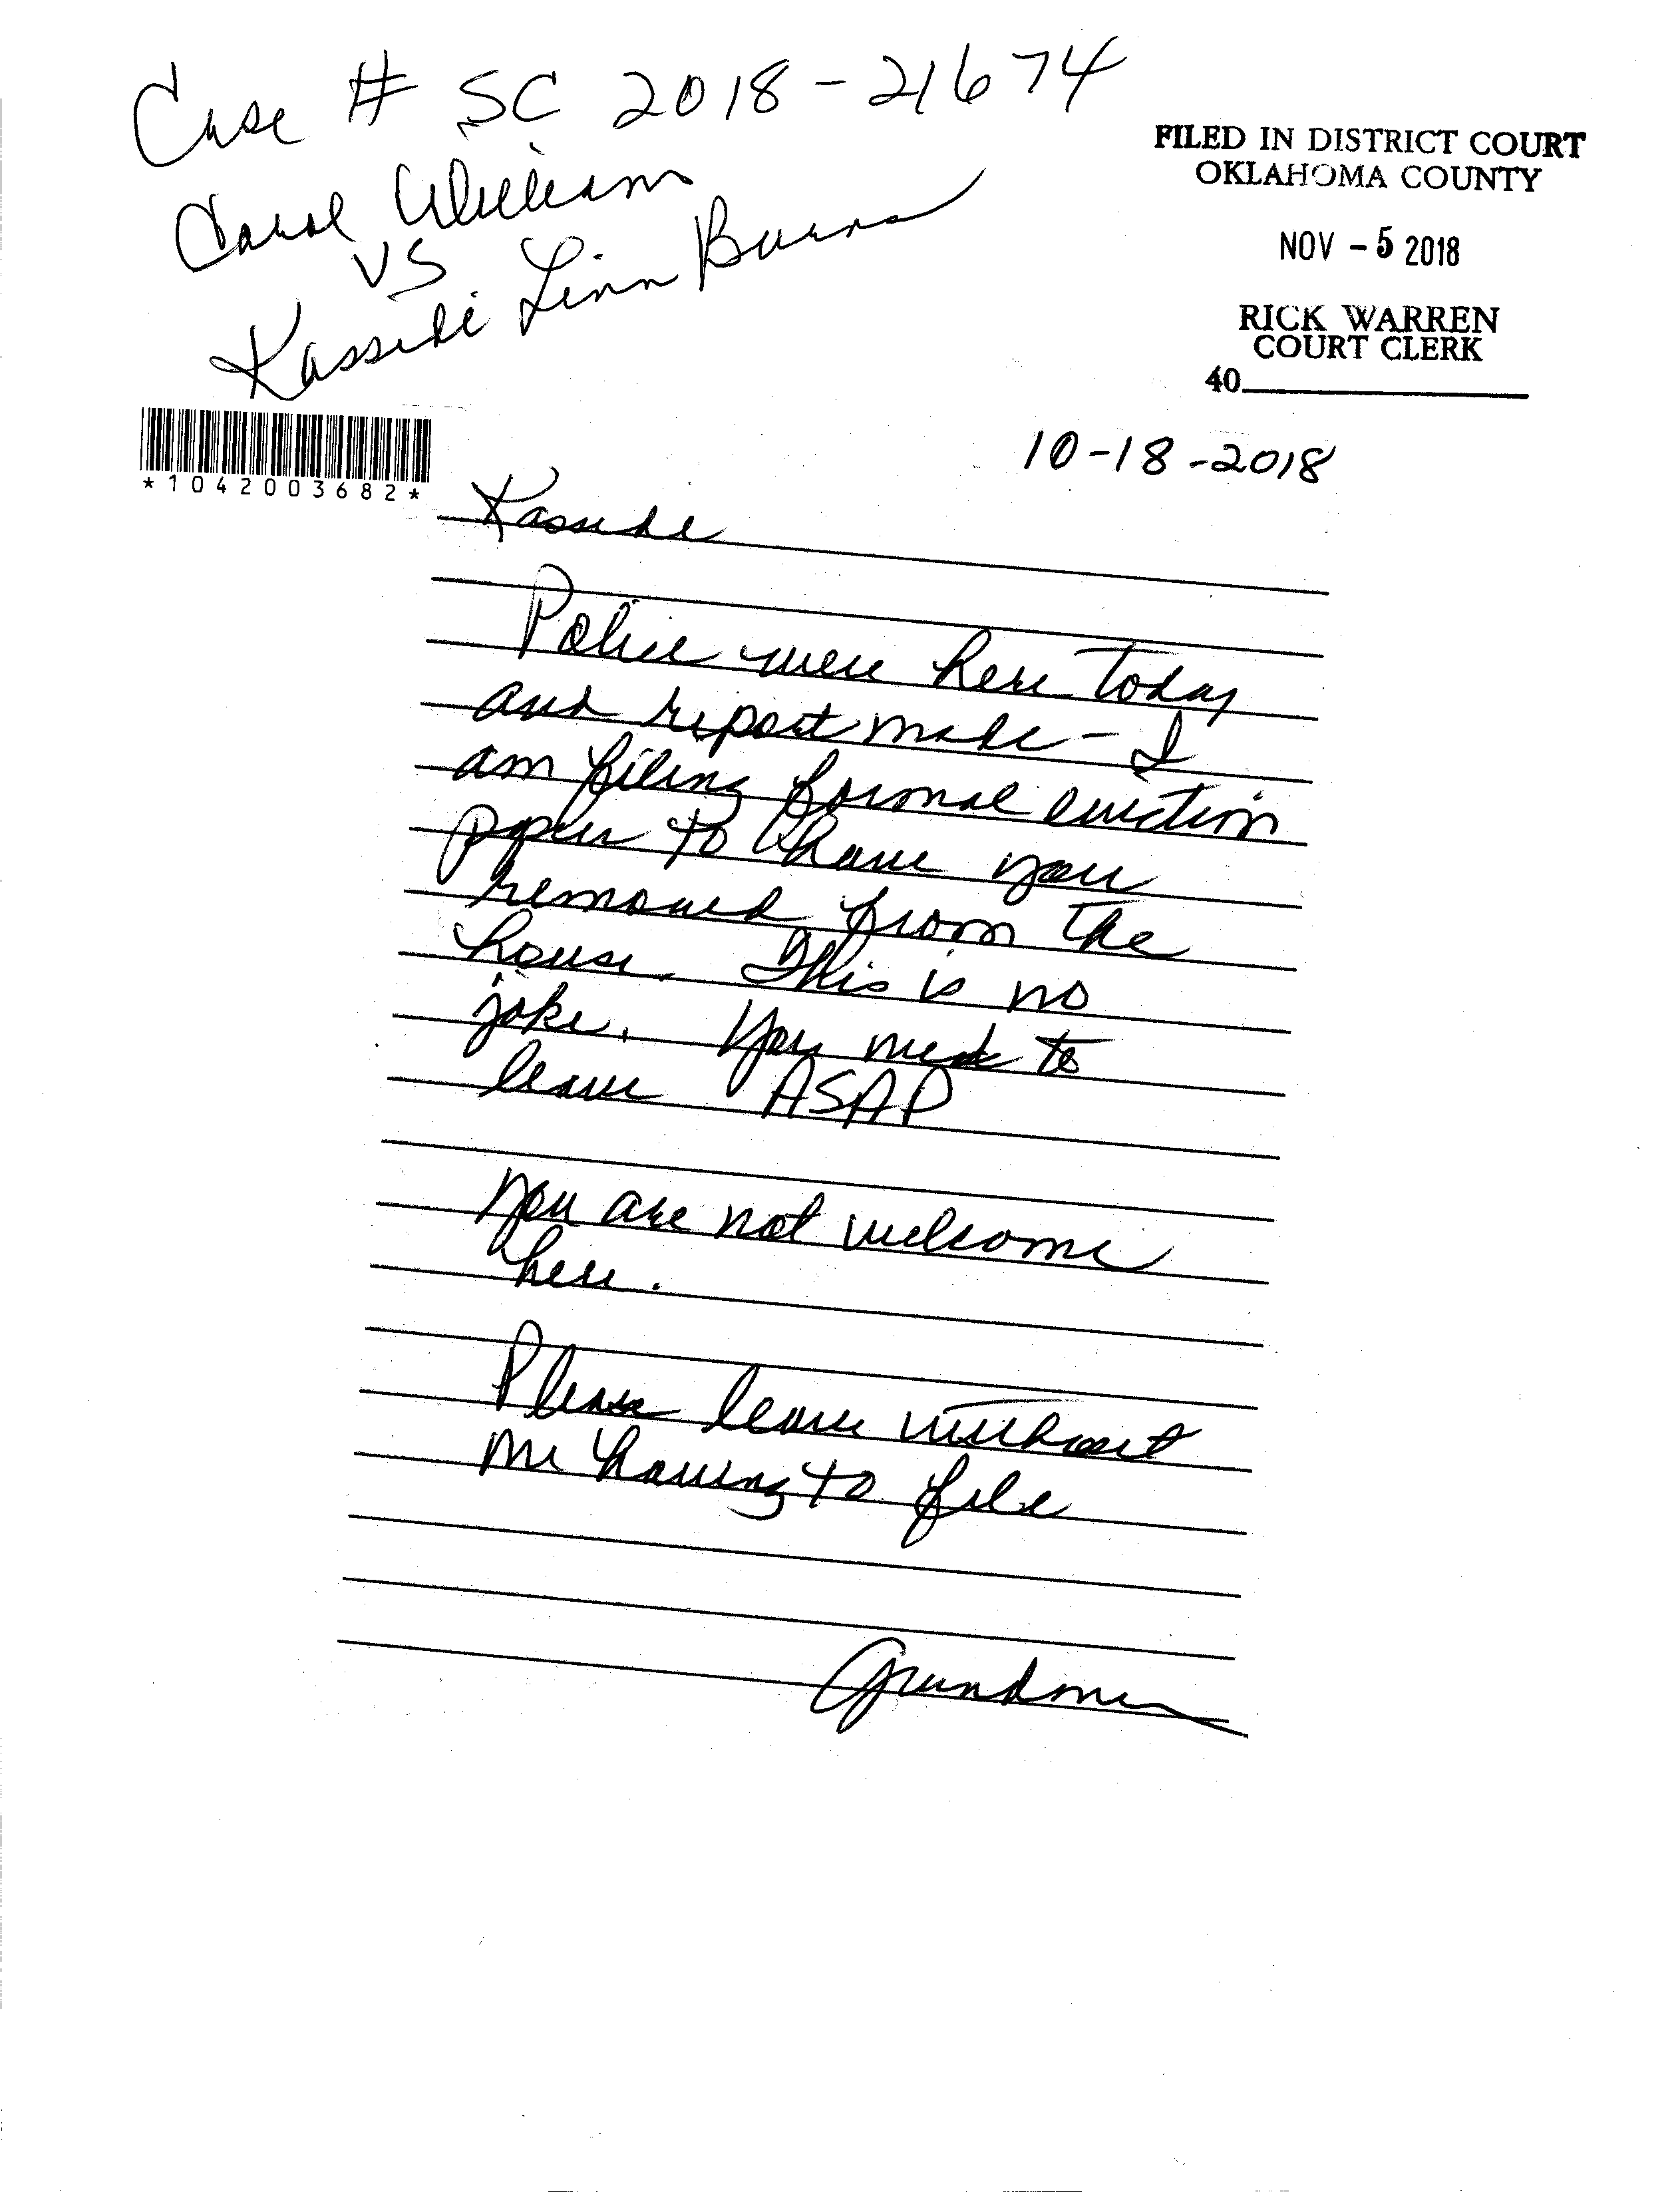 Case # SC 2018-21674
Carol Williams
VS
Kassidi Linn Burns
FILED IN DISTRICT COURT
OKLAHOMA COUNTY
NOV - 5 2018
RICK WARREN
COURT CLERK
40
*1042003682*
10-18-2018
Kasside
Police were here today
and report made - I
am filing formal eviction
paper to have you
removed from the
house. This is no
joke. You need to
leave ASAP
You are not welcome
here.
Please leave without
me having to file
Grandma